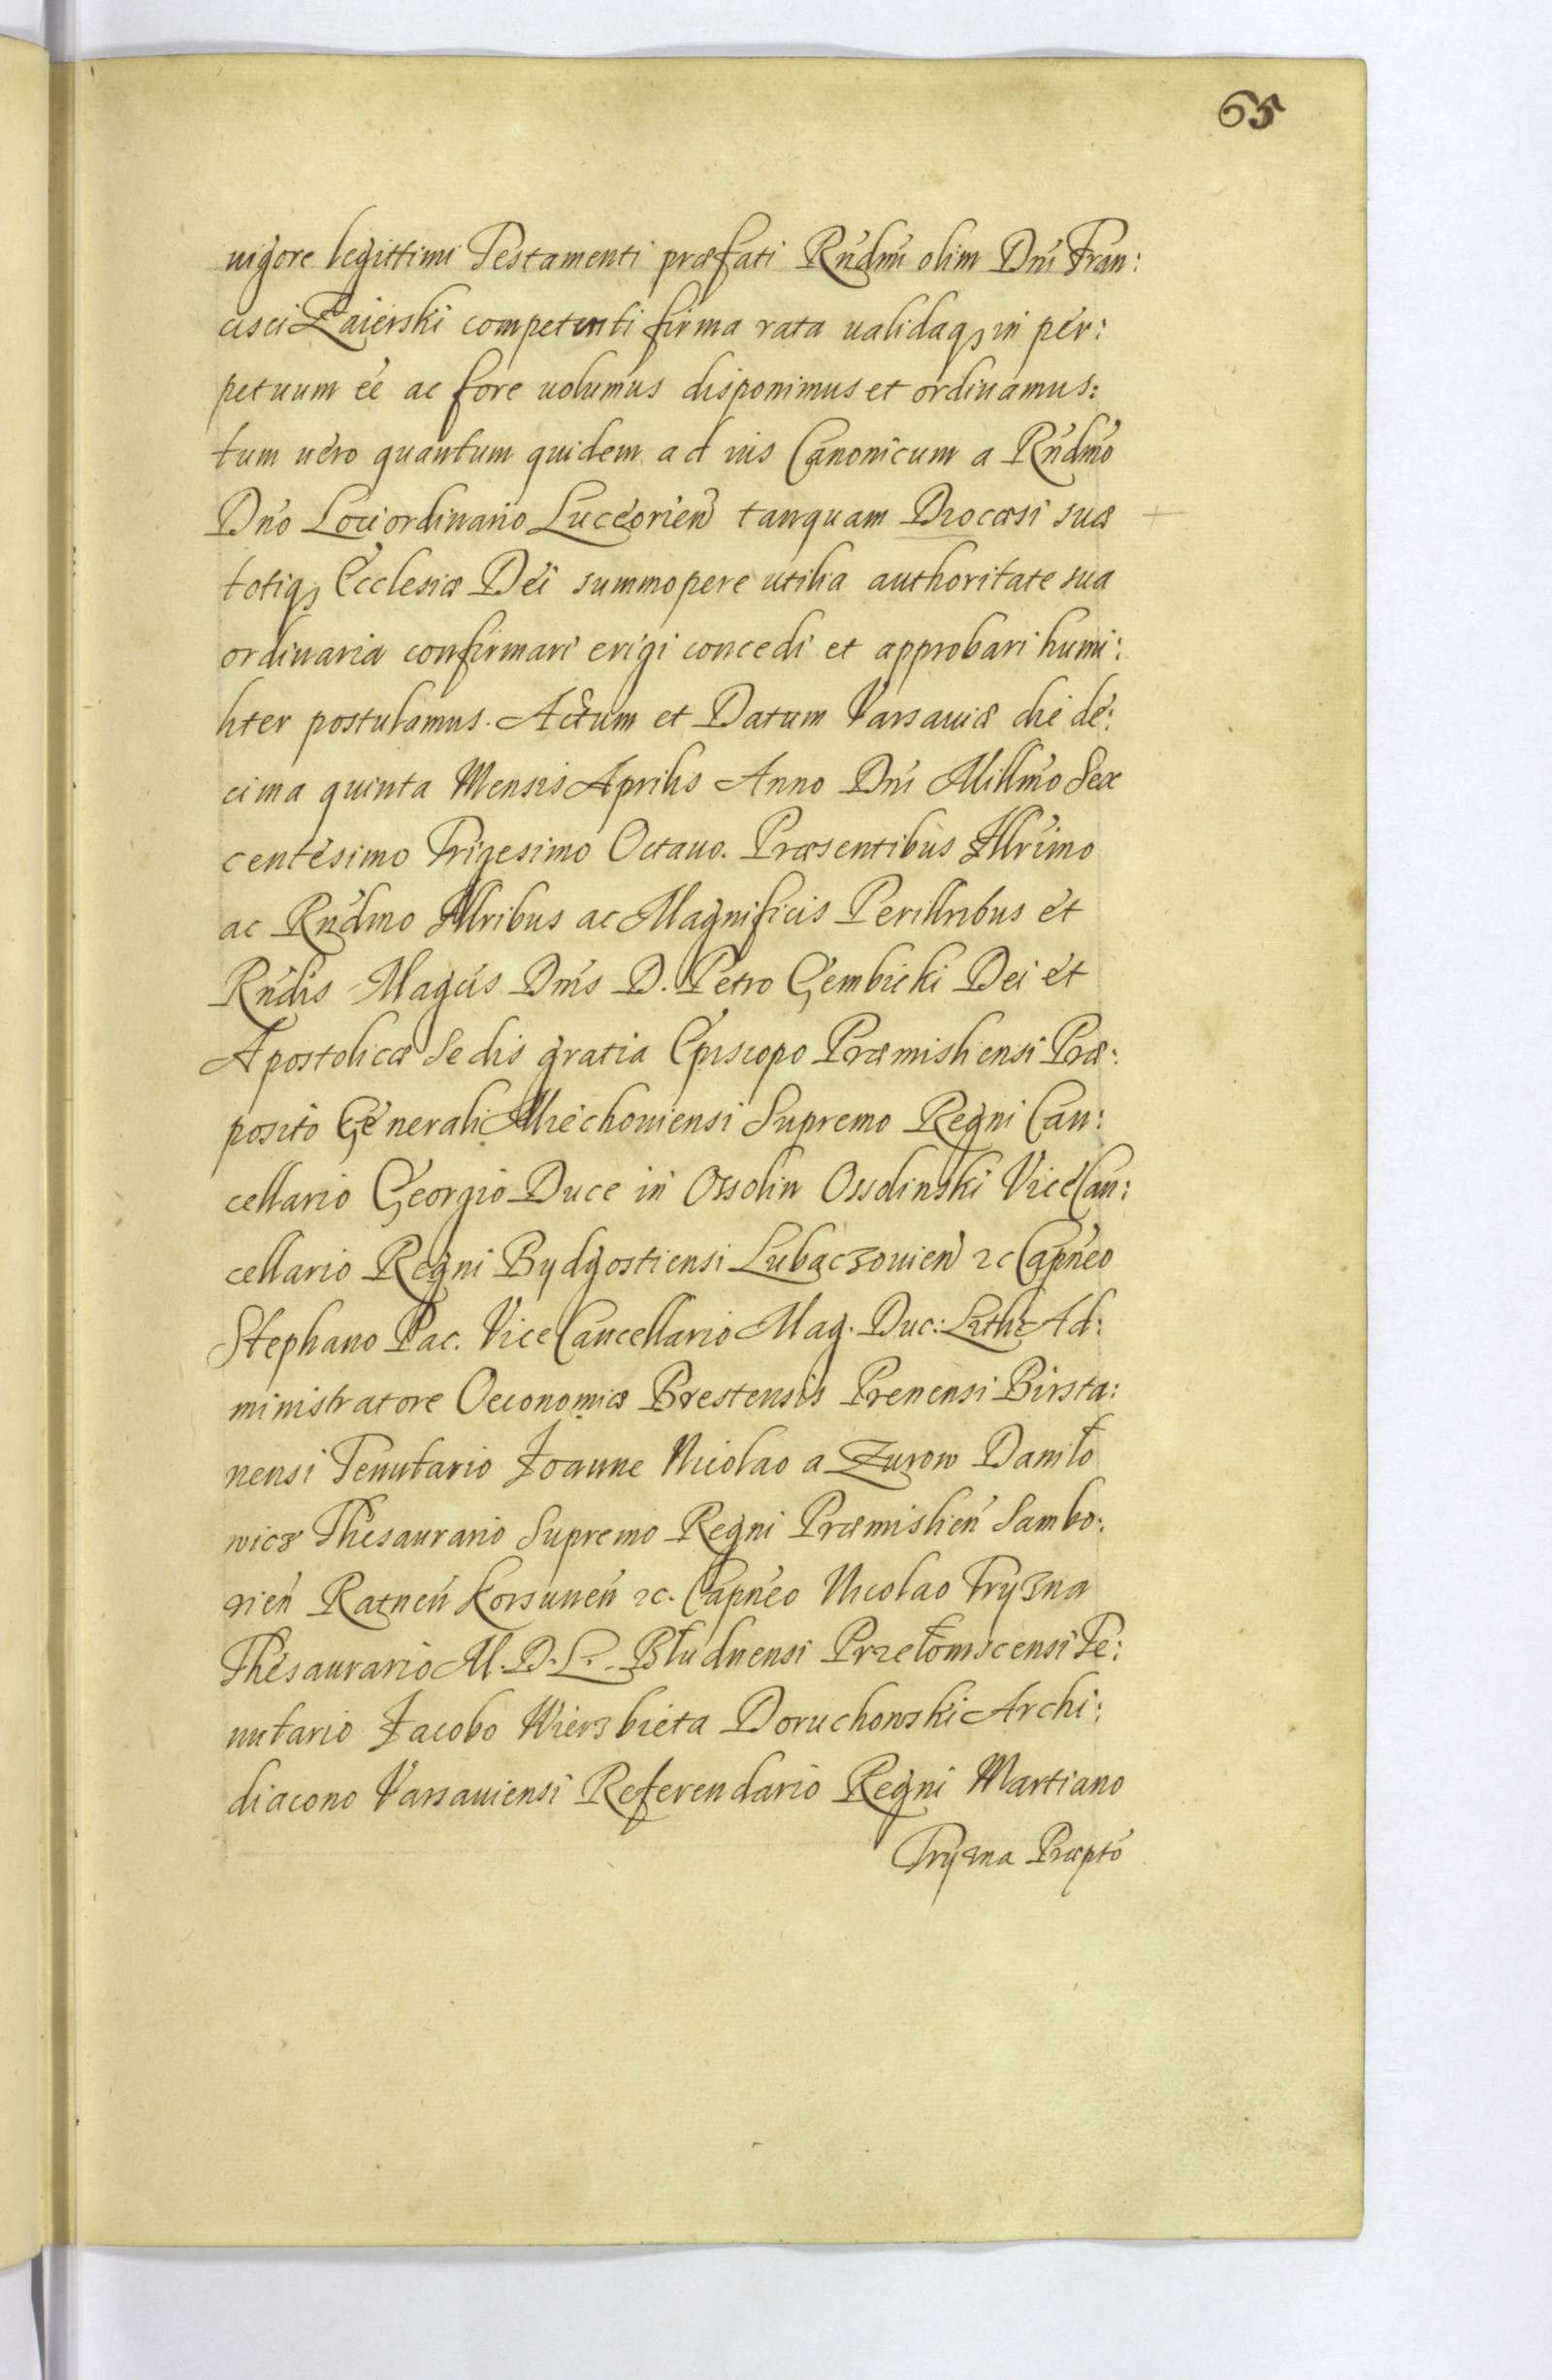 65
uigore legittimi Testamenti præfati Rńdmi olim Dńi Fran:
cisci Zaierski competenti firma rata validaqȝ in per:
petuum éé ac fore uolumus disponimus et ordinamus:
tum uero quantum quidem ad ius Canonicum a Rńdmo
Dńo Loci ordinario Luceorień tanquam Diocæsi suæ
totiqȝ Ecclesiæ Dei summopere utilia authoritate sua
ordinaria confirmari erigi concedi et approbari humi:
liter postulamus. Actum et Datum Varsauiæ die de:
cima quinta Mensis Aprilis Anno Dńi Millmo Sex
centesimo Trigesimo Octauo. Præsentibus Illrimo
ac Rńdmo Illribus ac Magnificis Perillribus et
Rńdis Magcis Dńis D. Petro Gembicki Dei et
Apostolicæ Sedis gratia Episcopo Præmisliensi Præ:
posito Generali Miechouiensi Supremo Regni Can:
cellario Georgio Duce in Ossolin Ossolinski Vice Can:
cellario Regni Bydgostiensi Lubaczouień ꝛc Capńeo
Stephano Pac. Vice Cancellario Mag. Duc: Lith: Ad:
ministratore Oeconomiæ Brestensis Prenensi Birsta:
nensi Tenutario Joanne Nicolao a Zurow Daniło
wicz Thesaurario Supremo Regni Præmislień Sambo:
rień Ratneń Korsuneń ꝛc. Capńeo Nicolao Tryzna
Thesaurario M. D. L. Błudnensi Przełomscensi Te:
nutario Jacobo Wierzbieta Doruchowski Archi:
diacono Varsauiensi Referendario Regni Martiano
Tryzna Præpto